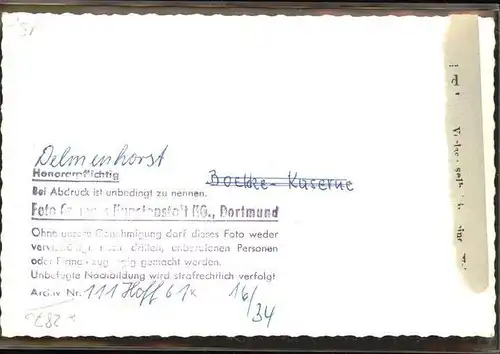 Delmenhorst
Honorarpflichtig
Boelke-Kaserne
Bei Abdruck ist unbedingt zu nennen.
Foto Kunstanstalt KG., Dortmund
Ohne unsere Genehmigung darf dieses Foto weder
dritten, unberufenen Personen
oder Firmen zugängig gemacht werden.
Unbefugte Nachbildung wird strafrechtlich verfolgt
Archiv Nr. 111 Hoff 61x 16/34